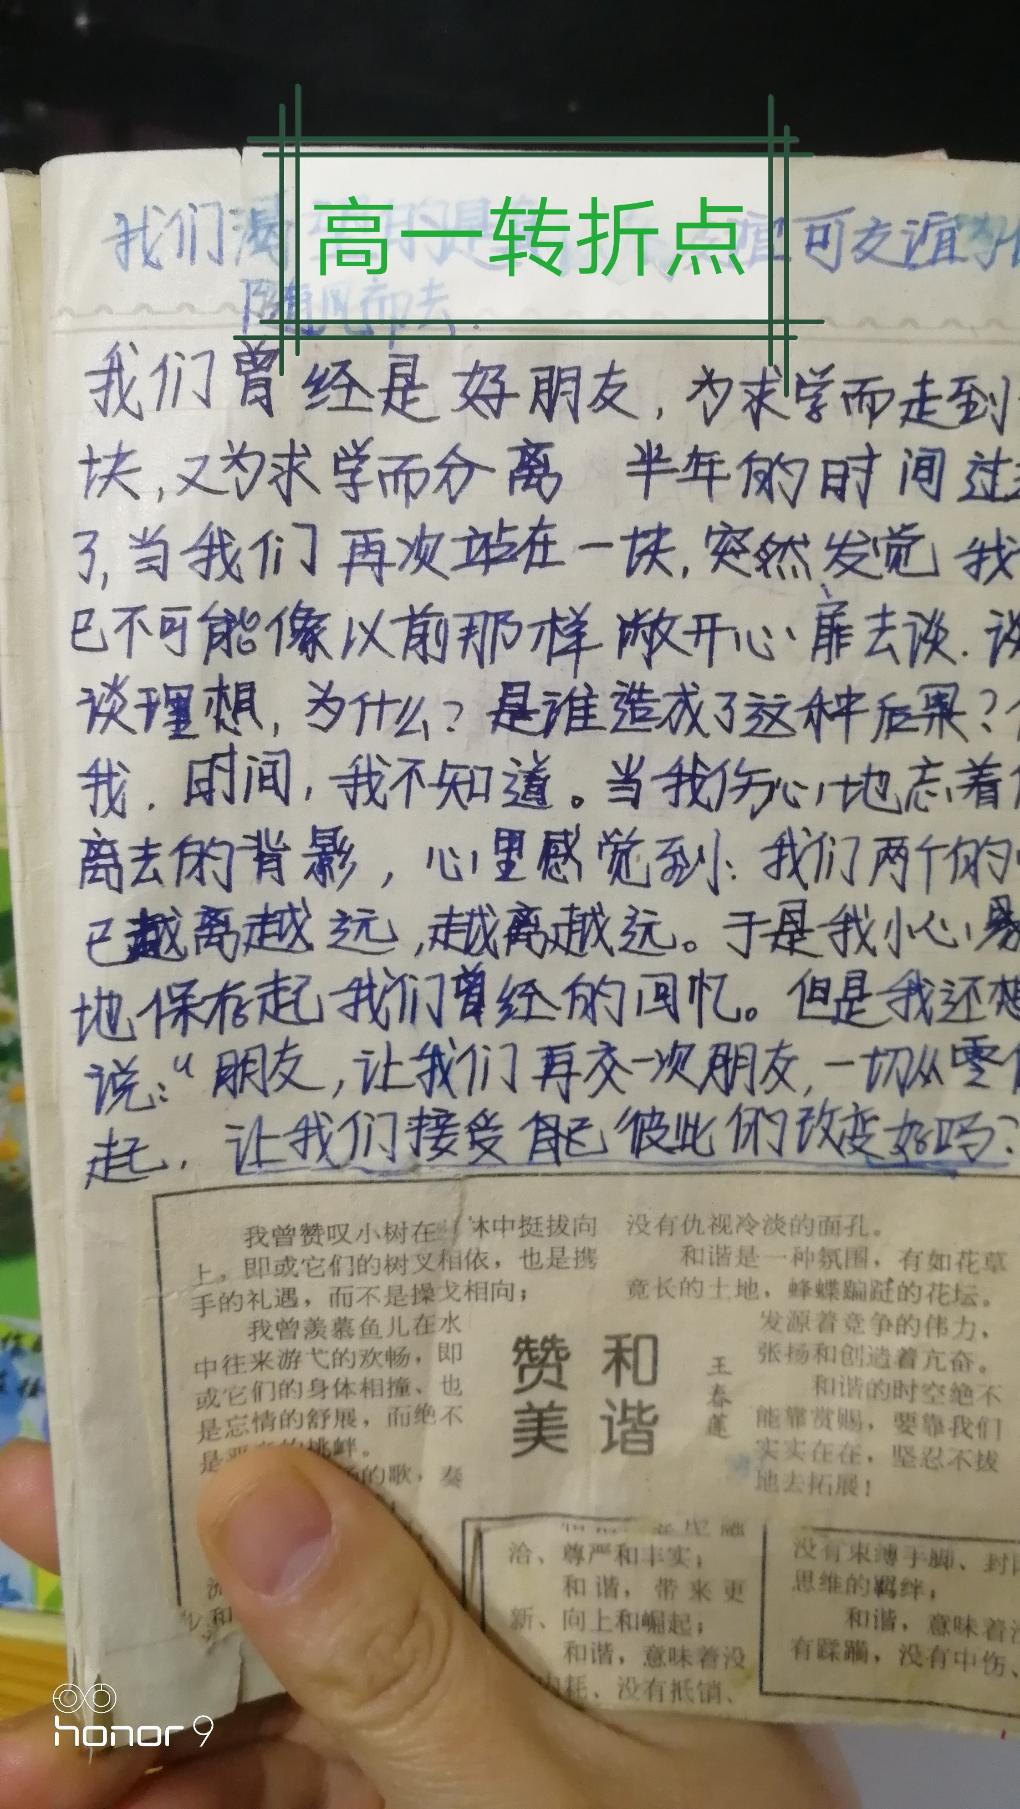 高一转折点
我们 可交谊
随风而去.
我们曾经是好朋友,为求学而走到
块,又为求学而分离 半年的时间过
了,当我们再次站在一块,突然发觉 我
已不可能像以前那样敞开心扉去谈.
谈理想,为什么?是谁造成了这种后果?
我.时间,我不知道。当我伤心地忘着
离去的背影,心里感觉到:我们两个的
已越离越远,越离越远。于是我小心
地保存起我们曾经的回忆。但是我还想
说:“朋友,让我们再交一次朋友,一切从零
起.让我们接受自己彼此的改变好吗?
我曾赞叹小树在 林中挺拔向
上,即或它们的树叉相依,也是携
手的礼遇,而不是操戈相向;
我曾羡慕鱼儿在水
中往来游弋的欢畅,即
或它们的身体相撞、也
是忘情的舒展,而绝不
是 的挑衅。
的歌,奏
赞美
和谐
王春莲
没有仇视冷淡的面孔。
和谐是一种氛围,有如花草
竟长的土地,蜂蝶蹁跹的花坛。
发源着竞争的伟力,
张扬和创造着亢奋。
和谐的时空绝不
能靠赏赐,要靠我们
实实在在,坚忍不拔
地去拓展!
洽、尊严和丰实;
和谐,带来更
新、向上和崛起;
和谐,意味着没
耗、没有抵销、
没有束缚手脚、封
思维的羁绊;
和谐,意味着
有蹂躏,没有中伤、
honor 9